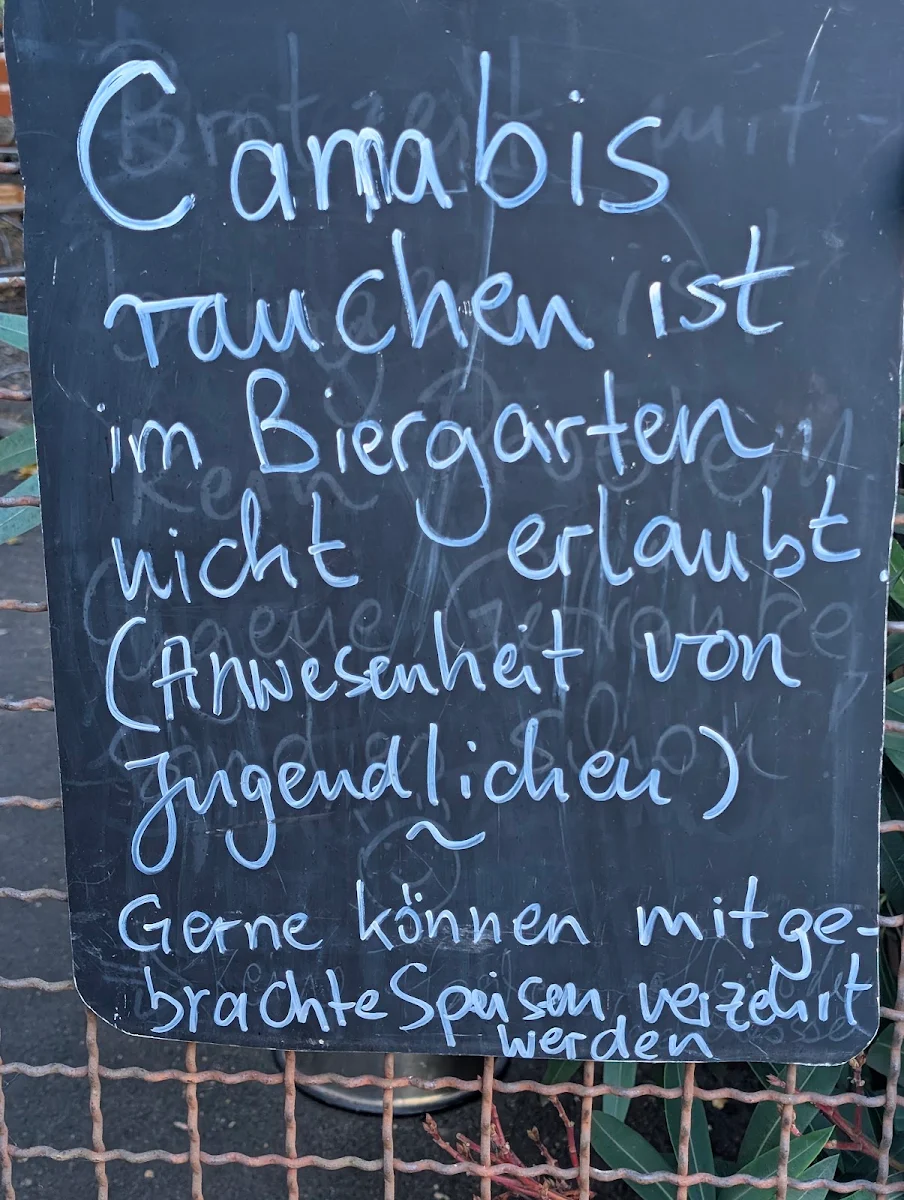 Cannabis
rauchen ist
im Biergarten
nicht erlaubt
(Anwesenheit von
Jugendlichen)
~
Gerne können mitge-
brachte Speisen verzehrt
werden